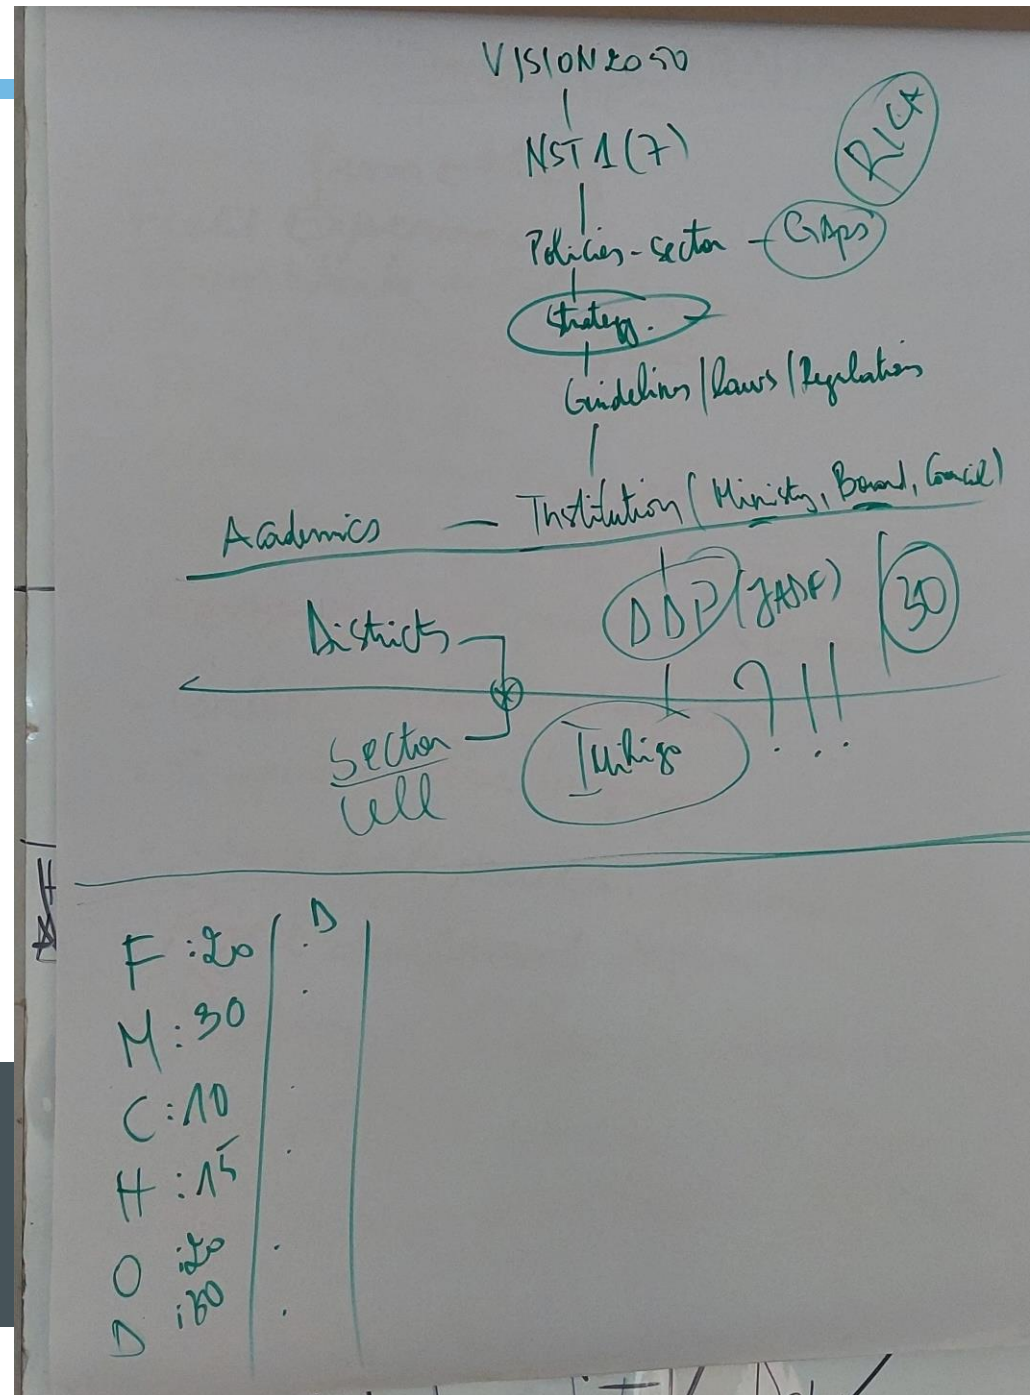 VISION 2050
NST1(7)
RICA
Policies - Sector - GAps
Strategy.
Guidelines/laws/Regulations
Academics - Institution (Ministry, Board, Council)
Districts
DDP (JADF)
30
?!!
Sector
Cell
Imihigo
F : 20
D
M : 30
C : 10
H : 15
O : 20
D : 30